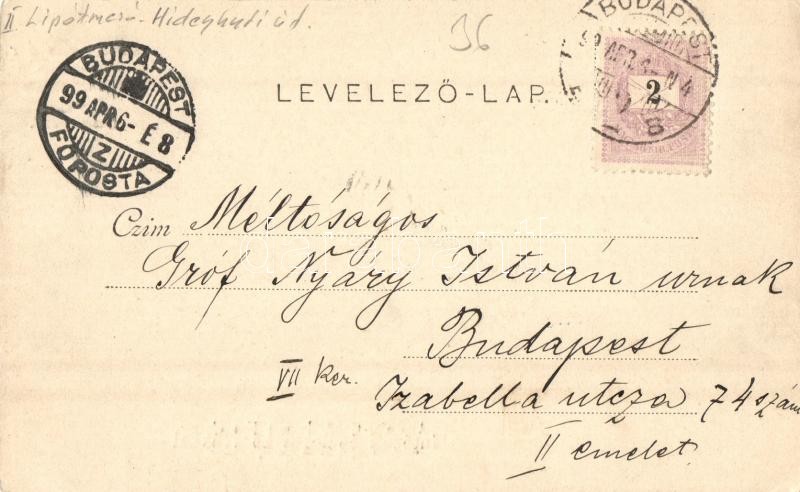 II Lipótmező - Hidegkuti út.
36
BUDAPEST
99 APR 6 - É 8
Z
FŐPOSTA
BUDAPEST
99 APR
N 4
2
8
LEVELEZŐ-LAP
Czim Méltóságos
Gróf Nyáry István urnak
Budapest
VII ker.
Izabella utcza 74 szám
II emelet.